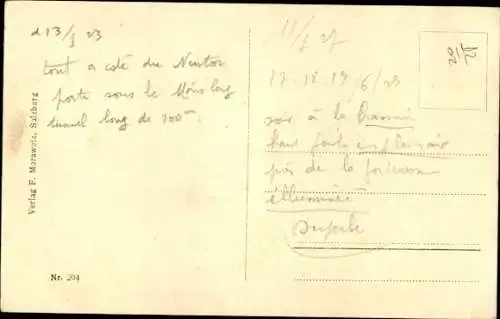 d 13/1 23
tout a coté du Neutor
porte sous le Mönchsberg
tunnel long de 100 m.
Verlag F. Morawetz, Salzburg
Nr. 204
11/1 27
12/02
17 18 19 6/23
soir à la
haut en plein air
près de la forteresse
illuminée
superbe